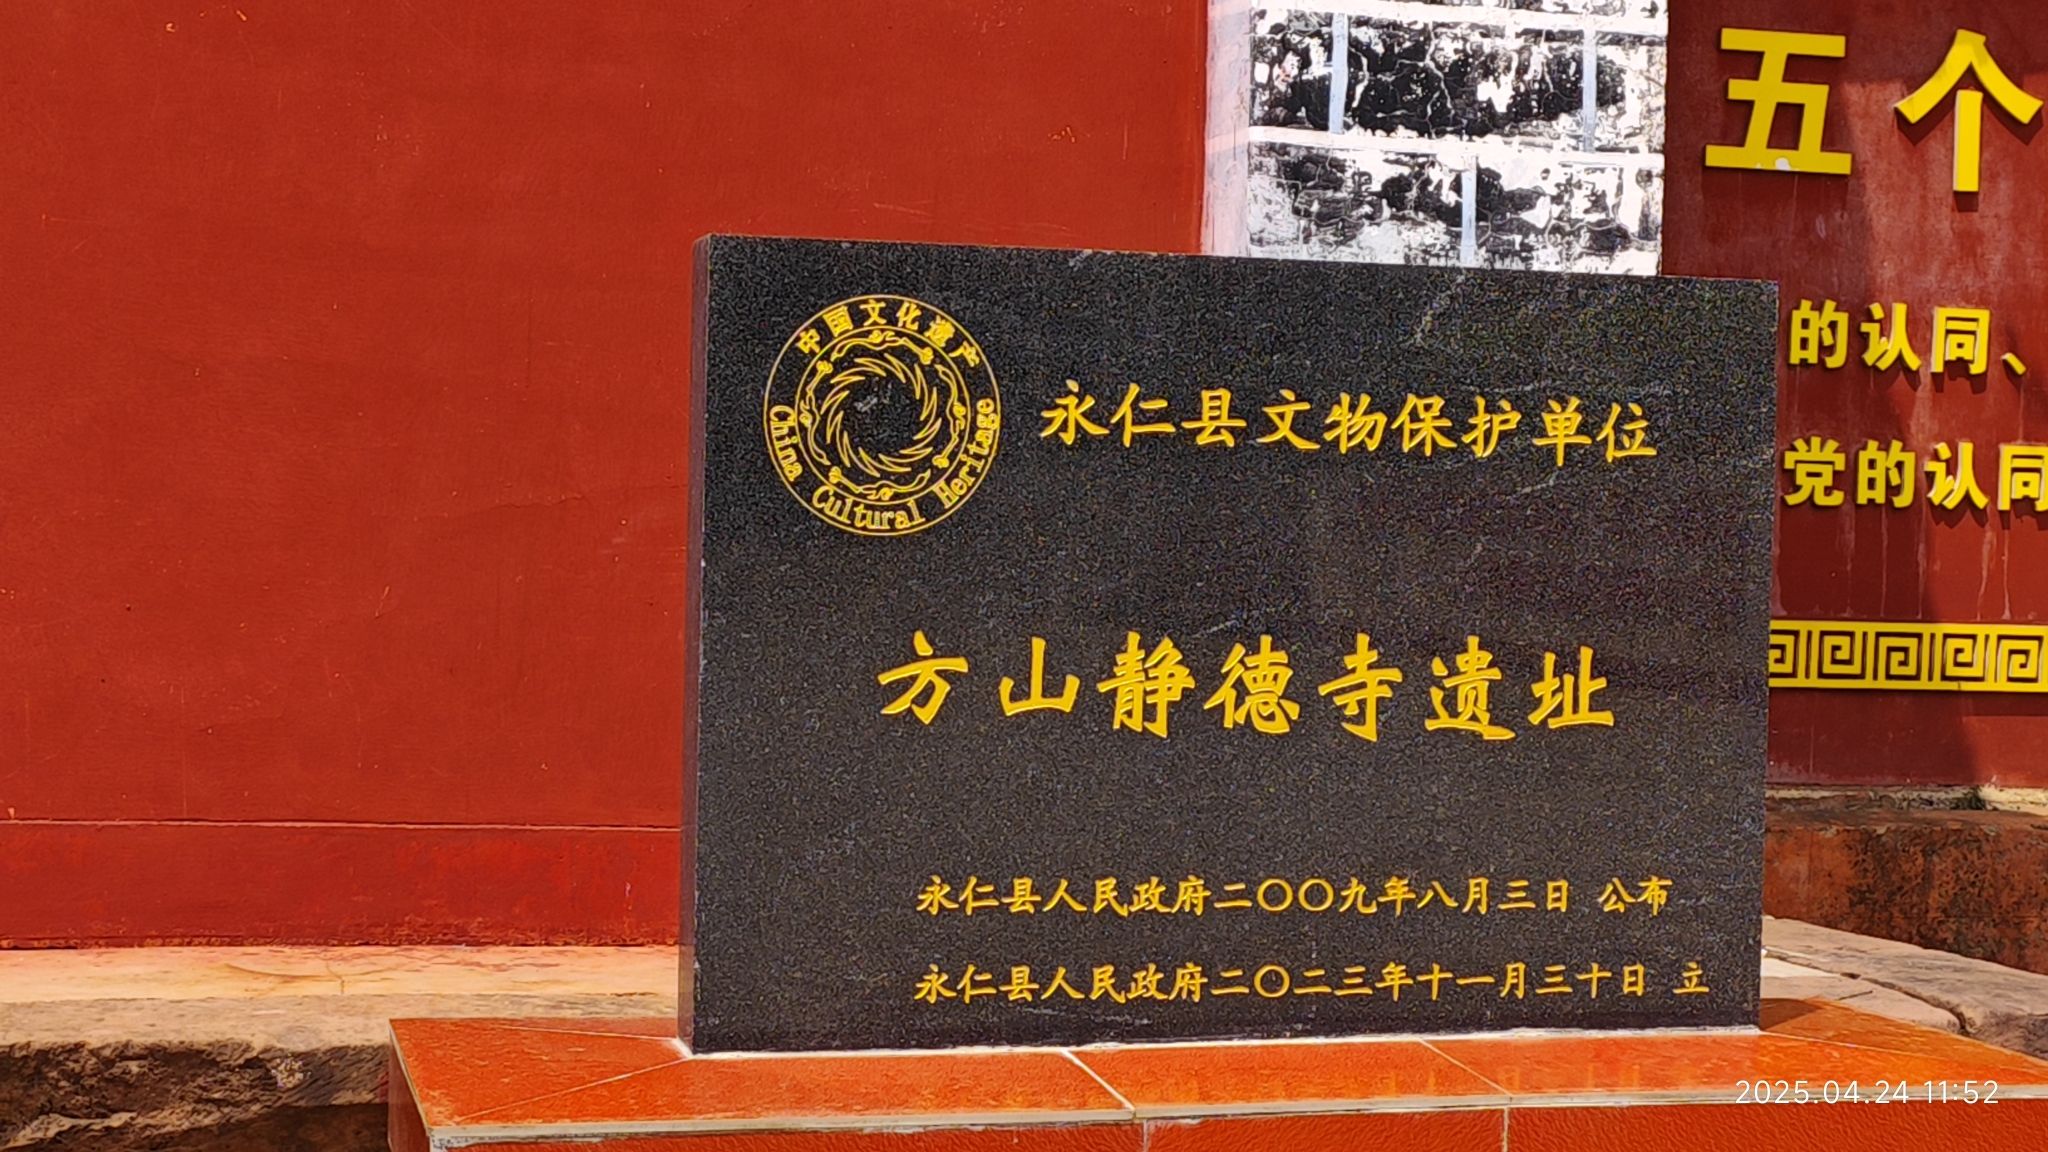 中国文化遗产
China Cultural Heritage
永仁县文物保护单位
方山静德寺遗址
永仁县人民政府二〇〇九年八月三日 公布
永仁县人民政府二〇二三年十一月三十日 立
五个
的认同、
党的认同
2025.04.24 11:52